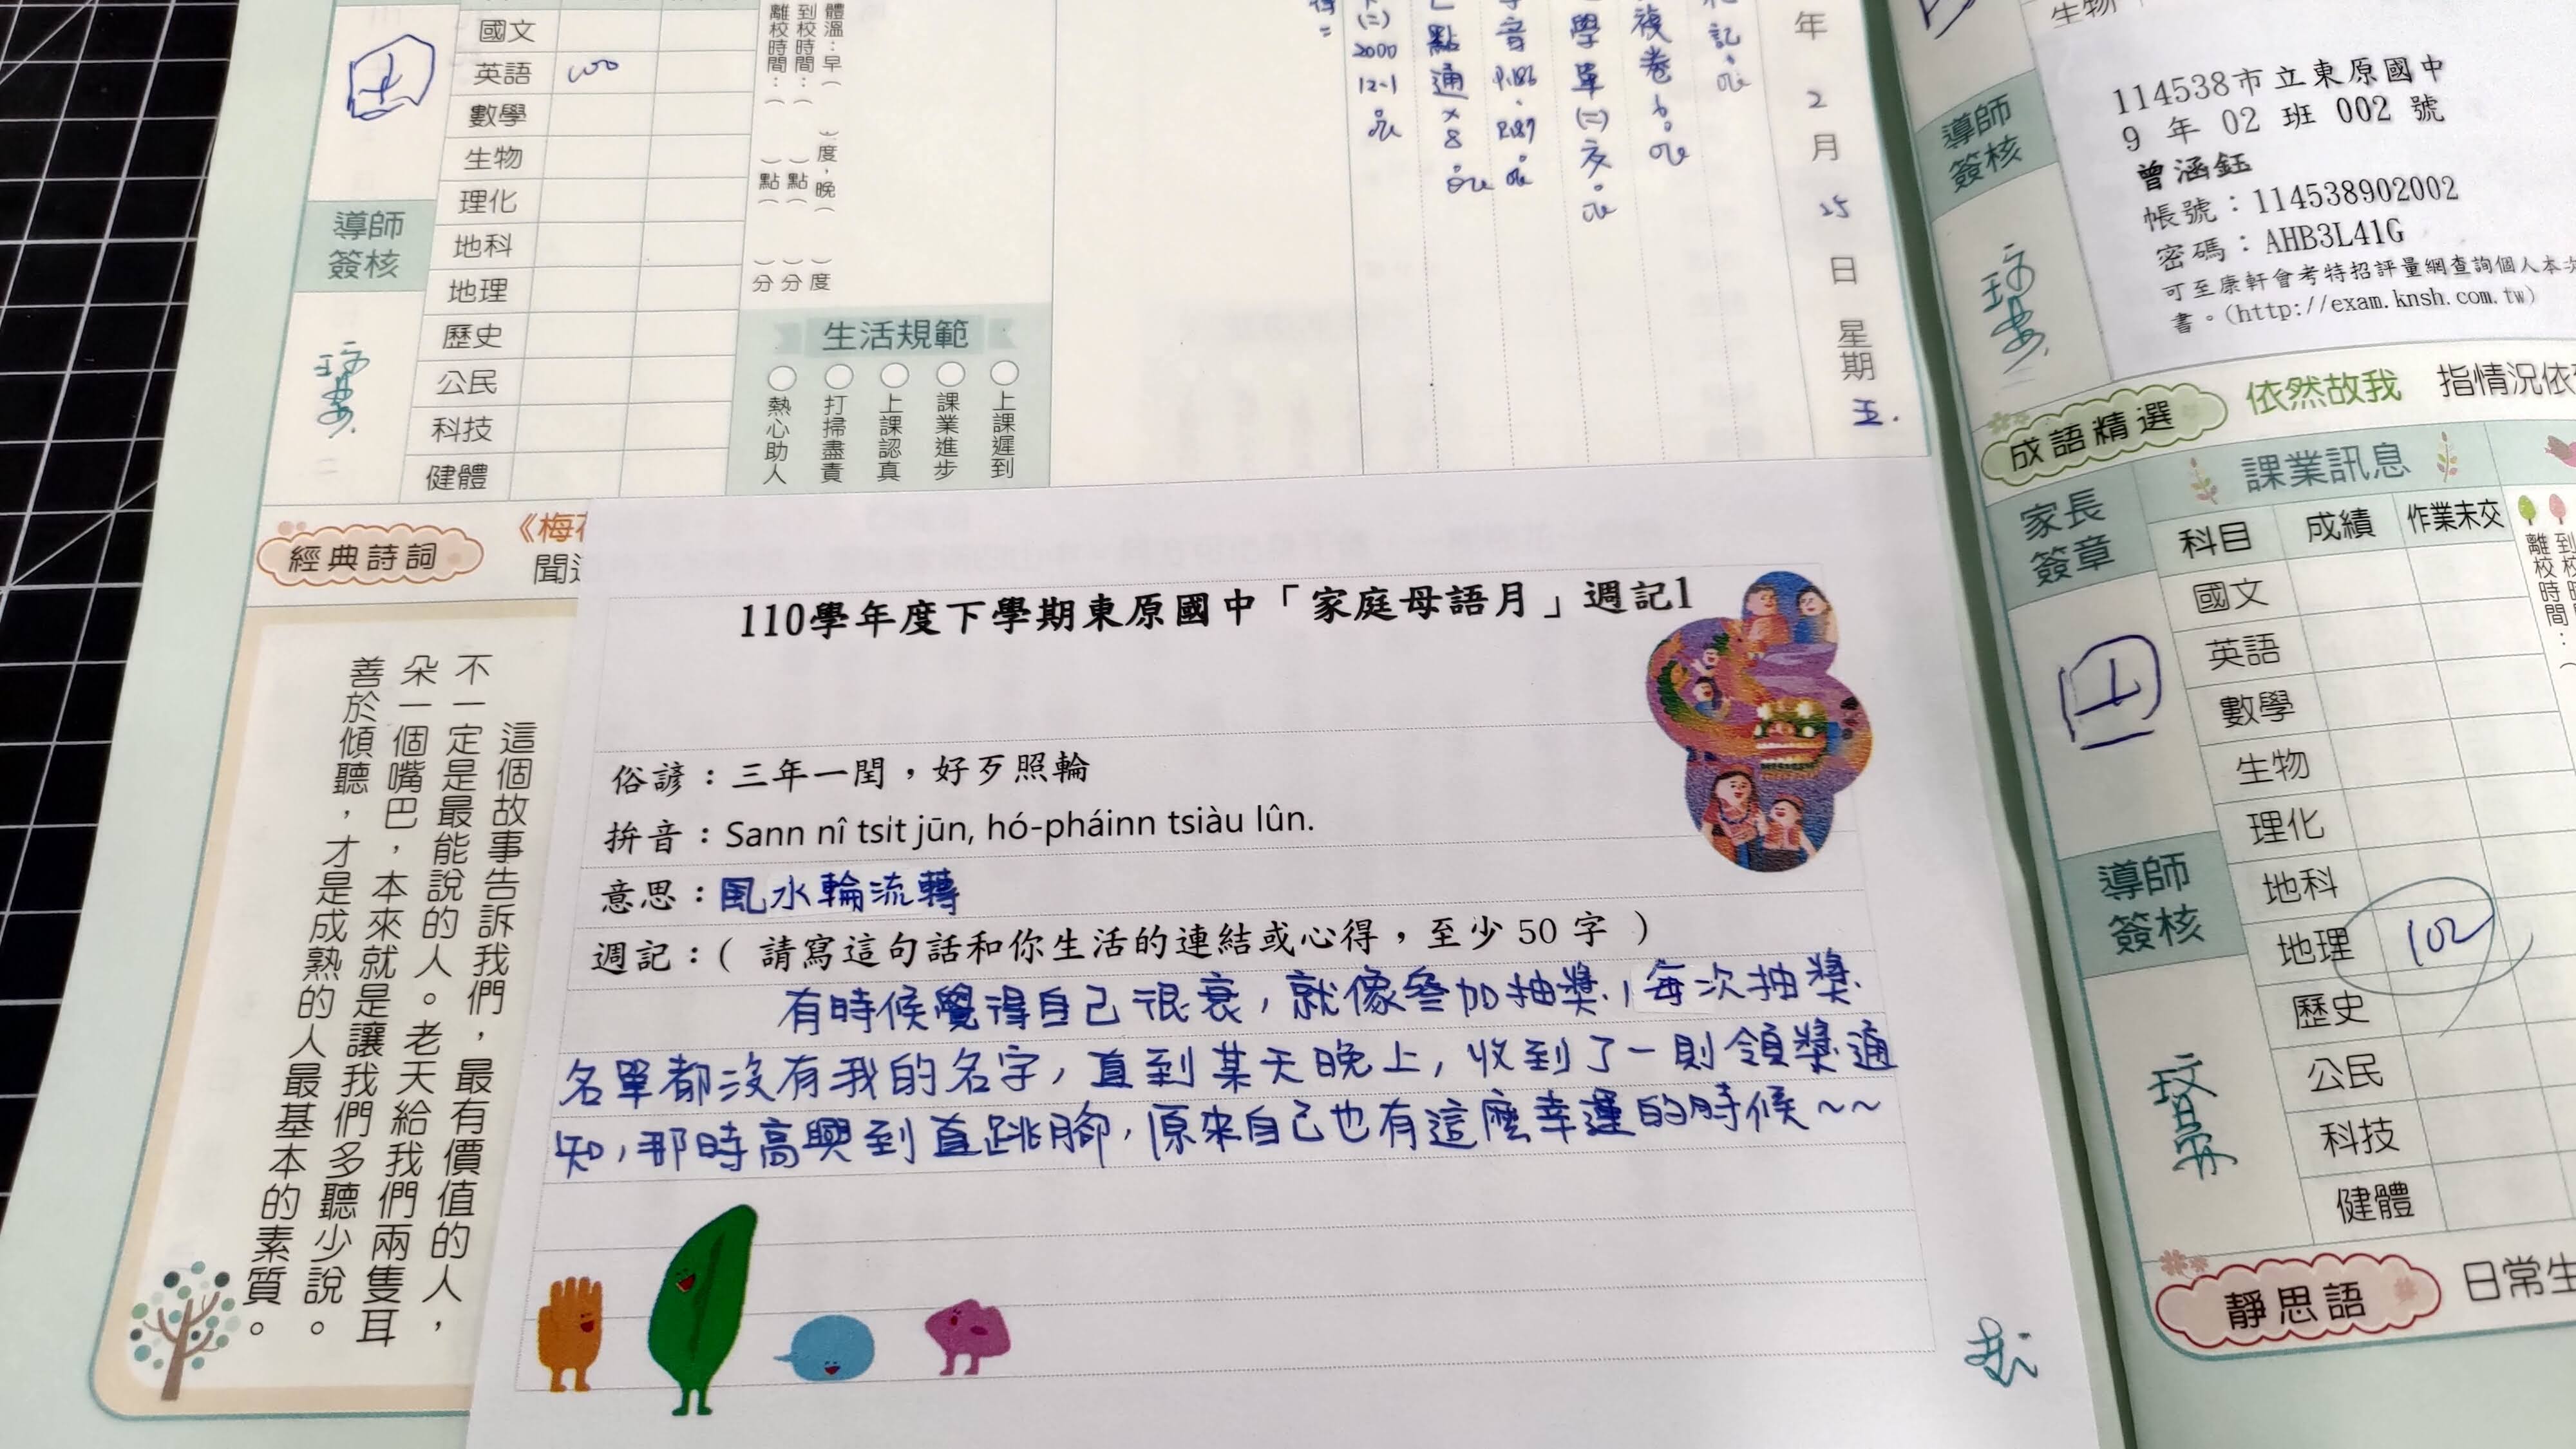 國文
英語 100
數學
生物
理化
地科
地理
歷史
公民
科技
健體
導師
簽核
體溫：早（　）度，晚（　）度
到校時間：（　）點（　）分
離校時間：（　）點（　）分
生活規範
熱心助人
打掃盡責
上課認真
課業進步
上課遲到
年2月25日星期五.
複卷
學單(二)
音 P.186、P.187
點通×8
(二)
2000
12-1
經典詩詞
《梅
聞
這個故事告訴我們，最有價值的人，
不一定是最能說的人。老天給我們兩隻耳
朵一個嘴巴，本來就是讓我們多聽少說。
善於傾聽，才是成熟的人最基本的素質。
110學年度下學期東原國中「家庭母語月」週記1
俗諺：三年一閏，好歹照輪
拼音：Sann nî tsi̍t jūn, hó-pháinn tsiàu lûn.
意思：風水輪流轉
週記：( 請寫這句話和你生活的連結或心得，至少 50 字 )
有時候覺得自己很衰，就像參加抽獎，每次抽獎
名單都沒有我的名字，直到某天晚上，收到了一則領獎通
知，那時高興到直跳腳，原來自己也有這麼幸運的時候~~
生物
導師
簽核
114538市立東原國中
9 年 02 班 002 號
曾涵鈺
帳號：114538902002
密碼：AHB3L41G
可至康軒會考特招評量網查詢個人本次
書。(http://exam.knsh.com.tw)
成語精選 依然故我 指情況依
家長
簽章
課業訊息
科目 成績 作業未交
國文
英語
數學
生物
理化
地科
地理 102
歷史
公民
科技
健體
導師
簽核
到校時間：（
離校時間：（
靜思語 日常生